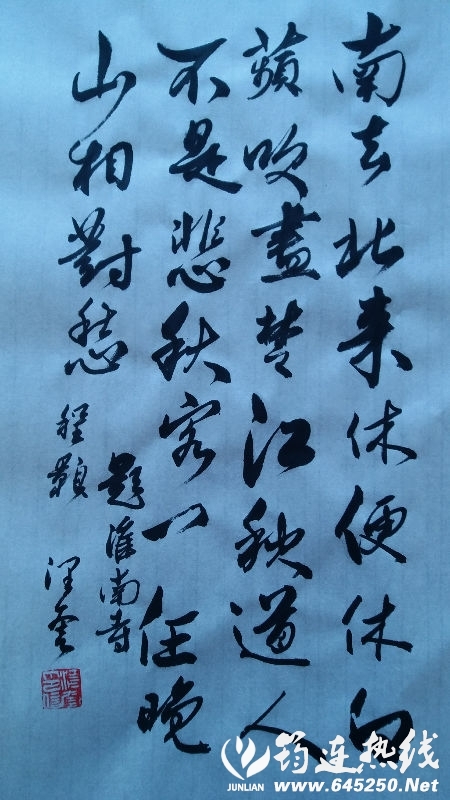 南去北来休便休白
蘋吹盡楚江秋道人
不是悲秋客一任晚
山相對愁
題淮南寺
程顥
筠连热线
JUNLIAN
www.645250.Net